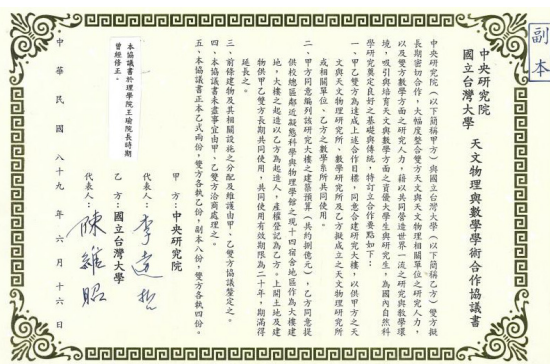 副本
中央研究院
國立台灣大學
天文物理與數學學術合作協議書
中央研究院(以下簡稱甲方)與國立台灣大學(以下簡稱乙方)雙方擬
長期密切合作,大幅度整合雙方天文與天文物理相關單位之研究人力,
以及雙方在數學方面之研究人力,藉以共同營造世界一流之研究與教學環
境,吸引與培育天文及數學方面之資優大學生與研究生,為國內自然科
學研究奠定良好之基礎與傳統,特訂立合作要點如下:
一、甲乙雙方為達成上述合作目標,同意合建研究大樓,以供甲方之天
文與天文物理研究所、數學研究所及乙方擬成立之天文物理研究所
或相關單位、乙方之數學系所共同使用。
二、甲方同意編列該研究大樓之建築預算(共約捌億元),乙方同意提
供校總區鄰近凝態科學與物理學館之現十四宿舍地區作為大樓建
地,大樓之起造以乙方為起造人,產權登記為乙方。上開土地及建
物供甲乙雙方長期共同使用,共同使用有效期限為二十年,期滿得
延長之。
三、前條建物及其相關設施之分配及維護由甲、乙雙方協議釐定之。
四、本協議書未盡事宜由甲、乙雙方洽商處理之。
五、本協議書正本乙式兩份,雙方各執乙份,副本八份,雙方各執四份。
本協議書於理學院王瑜院長時期
曾經修正。
甲方:中央研究院
代表人:李遠哲
乙方:國立台灣大學
代表人:陳維昭
中華民國八十九年六月十六日